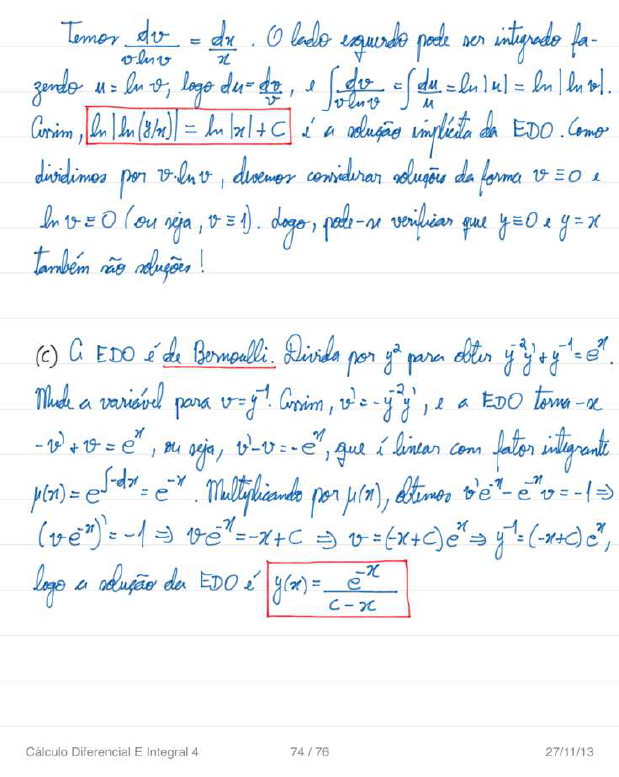 Temos dv/(v ln v) = dx/x . O lado esquerdo pode ser integrado fa-
zendo u = ln v, logo du = dv/v, e ∫ dv/(v ln v) = ∫ du/u = ln|u| = ln|ln v|.
Assim, ln|ln(y/x)| = ln|x| + C é a solução implícita da EDO. Como
dividimos por v.ln v, devemos considerar soluções da forma v ≡ 0 e
ln v ≡ 0 (ou seja, v ≡ 1). Logo, pode-se verificar que y ≡ 0 e y = x
também são soluções!
(c) A EDO é de Bernoulli. Divida por y² para obter y⁻²y' + y⁻¹ = eˣ.
Mude a variável para v = y⁻¹. Assim, v' = -y⁻²y', e a EDO torna-se
-v' + v = eˣ, ou seja, v' - v = -eˣ, que é linear com fator integrante
μ(x) = e^∫-dx = e⁻ˣ. Multiplicando por μ(x), obtemos v'e⁻ˣ - e⁻ˣv = -1 ⇒
(ve⁻ˣ)' = -1 ⇒ ve⁻ˣ = -x + C ⇒ v = (-x+C)eˣ ⇒ y⁻¹ = (-x+C)eˣ,
logo a solução da EDO é y(x) = e⁻ˣ/(C - x)
Cálculo Diferencial E Integral 4 74 / 76 27/11/13